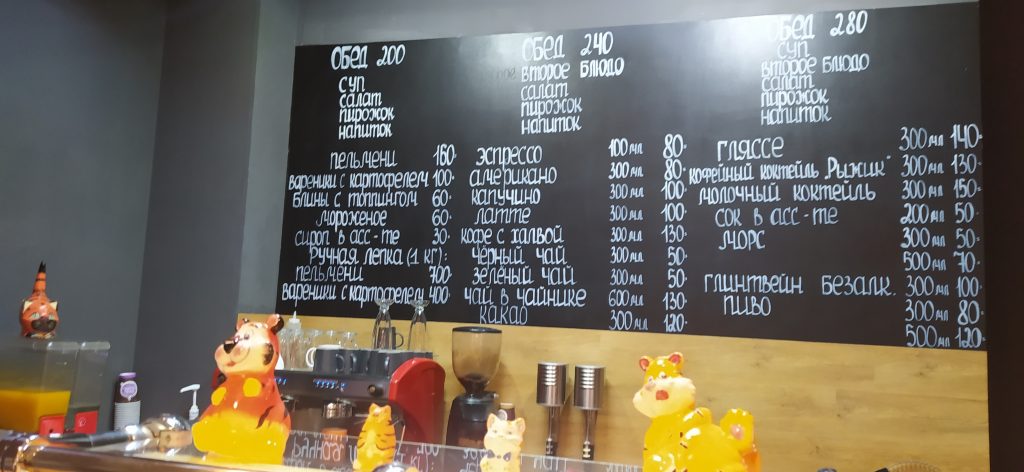 ОБЕД 200
суп
салат
пирожок
напиток
ОБЕД 240
второе блюдо
салат
пирожок
напиток
ОБЕД 280
суп
второе блюдо
салат
пирожок
напиток
пельмени 160-
вареники с картофелем 100-
блины с топпингом 60-
мороженое 60-
сироп в асс-те 30-
Ручная лепка (1 кг):
пельмени 700-
вареники с картофелем 400-
эспрессо 100мл 80-
американо 300мл 80-
капучино 300мл 100-
латте 300мл 100-
кофе с халвой 300мл 130-
чёрный чай 300мл 50-
зелёный чай 300мл 50
чай в чайнике 600мл 130-
какао 300мл 120-
гляссе 300мл 140-
кофейный коктейль „Рыжик" 300мл 130-
молочный коктейль 300мл 150-
сок в асс-те 200мл 50-
морс 300мл 50-
500мл 70-
глинтвейн безалк. 300мл 100
пиво 300мл 80-
500мл 120-